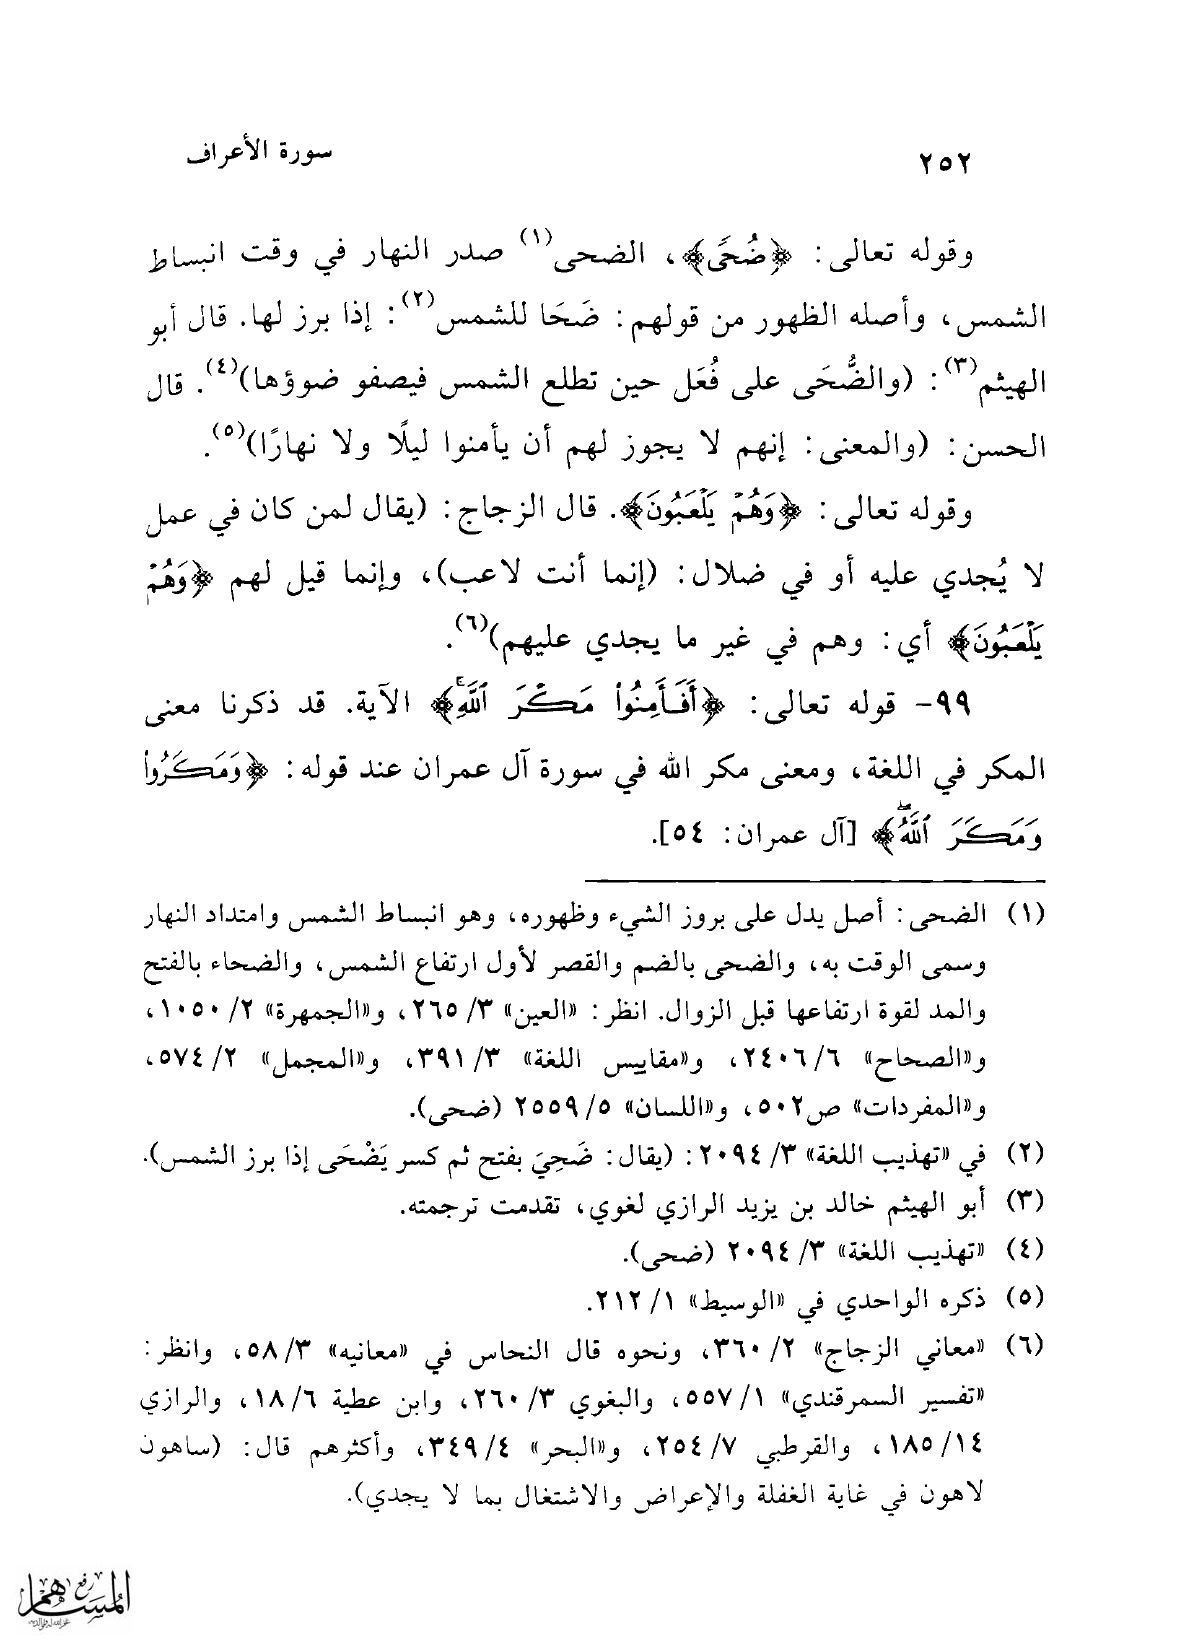 ٢٥٢ سورة الأعراف
وقوله تعالى: ﴿ضُحًى﴾، الضحى(١) صدر النهار في وقت انبساط
الشمس، وأصله الظهور من قولهم: ضَحَا للشمس(٢): إذا برز لها. قال أبو
الهيثم(٣): (والضُّحَى على فُعَل حين تطلع الشمس فيصفو ضوؤها)(٤). قال
الحسن: (والمعنى: إنهم لا يجوز لهم أن يأمنوا ليلًا ولا نهارًا)(٥).
وقوله تعالى: ﴿وَهُمْ يَلْعَبُونَ﴾. قال الزجاج: (يقال لمن كان في عمل
لا يُجدي عليه أو في ضلال: (إنما أنت لاعب)، وإنما قيل لهم ﴿وَهُمْ
يَلْعَبُونَ﴾ أي: وهم في غير ما يجدي عليهم)(٦).
٩٩- قوله تعالى: ﴿أَفَأَمِنُواْ مَكْرَ ٱللَّهِۚ﴾ الآية. قد ذكرنا معنى
المكر في اللغة، ومعنى مكر الله في سورة آل عمران عند قوله: ﴿وَمَكَرُواْ
وَمَكَرَ ٱللَّهُۖ﴾ [آل عمران: ٥٤].
(١) الضحى: أصل يدل على بروز الشيء وظهوره، وهو انبساط الشمس وامتداد النهار
وسمى الوقت به، والضحى بالضم والقصر لأول ارتفاع الشمس، والضحاء بالفتح
والمد لقوة ارتفاعها قبل الزوال. انظر: «العين» ٣/ ٢٦٥، و«الجمهرة» ٢/ ١٠٥٠،
و«الصحاح» ٦/ ٢٤٠٦، و«مقاييس اللغة» ٣/ ٣٩١، و«المجمل» ٢/ ٥٧٤،
و«المفردات» ص٥٠٢، و«اللسان» ٥/ ٢٥٥٩ (ضحى).
(٢) في «تهذيب اللغة» ٣/ ٢٠٩٤: (يقال: ضَحِيَ بفتح ثم كسر يَضْحَى إذا برز الشمس).
(٣) أبو الهيثم خالد بن يزيد الرازي لغوي، تقدمت ترجمته.
(٤) «تهذيب اللغة» ٣/ ٢٠٩٤ (ضحى).
(٥) ذكره الواحدي في «الوسيط» ١/ ٢١٢.
(٦) «معاني الزجاج» ٢/ ٣٦٠، ونحوه قال النحاس في «معانيه» ٣/ ٥٨، وانظر:
«تفسير السمرقندي» ١/ ٥٥٧، والبغوي ٣/ ٢٦٠، وابن عطية ٦/ ١٨، والرازي
١٤/ ١٨٥، والقرطبي ٧/ ٢٥٤، و«البحر» ٤/ ٣٤٩، وأكثرهم قال: (ساهون
لاهون في غاية الغفلة والإعراض والاشتغال بما لا يجدي).